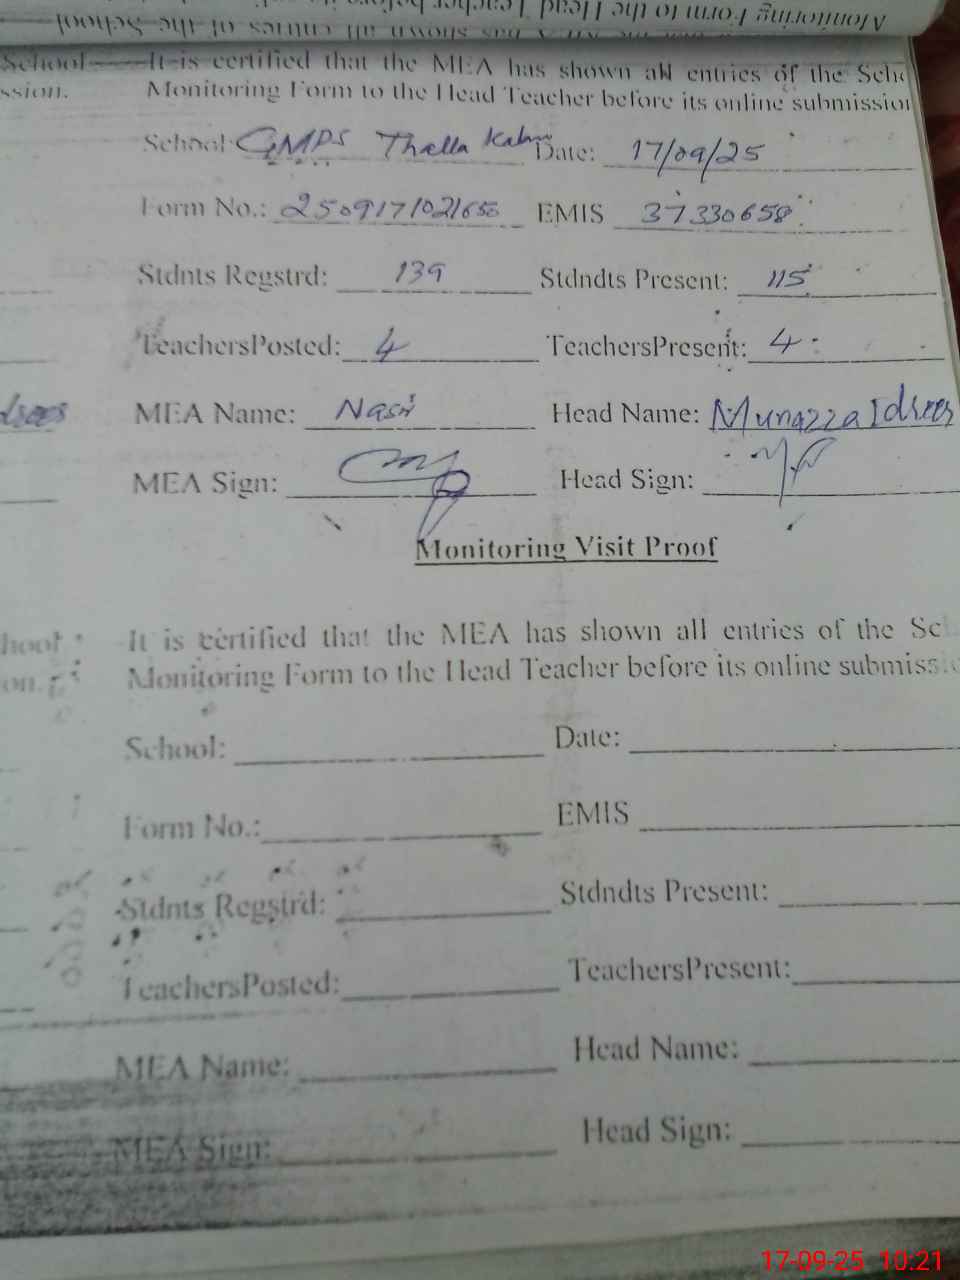 Monitoring Form to the Head Teacher before its
has shown all entries of the School
School It is certified that the MEA has shown all entries of the Scho
ssion. Monitoring Form to the Head Teacher before its online submission
School: GMPS Thalla Kalan Date: 17/09/25
Form No.: EMIS 37330658
Stdnts Regstrd: 139 Stdndts Present: 115
TeachersPosted: 4 TeachersPresent: 4
MEA Name: Nasir Head Name: Munazza Idrees
MEA Sign: Head Sign:
Monitoring Visit Proof
hool It is certified that the MEA has shown all entries of the Sc
on. Monitoring Form to the Head Teacher before its online submissio
School: Date:
Form No.: EMIS
Stdnts Regstrd: Stdndts Present:
TeachersPosted: TeachersPresent:
MEA Name: Head Name:
MEA Sign: Head Sign:
17-09-25 10:21